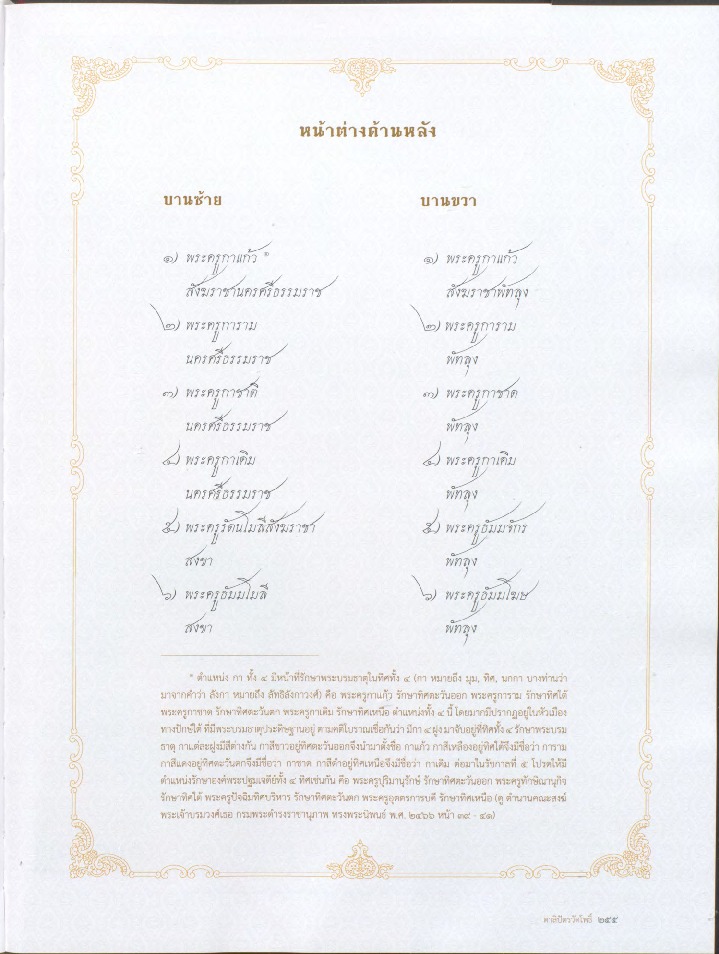 หน้าต่างด้านหลัง
บานซ้าย
๑) พระครูกาแก้ว *
สังฆราชานครศรีธรรมราช
๒) พระครูการาม
นครศรีธรรมราช
๓) พระครูกาชาติ
นครศรีธรรมราช
๔) พระครูกาเดิม
นครศรีธรรมราช
๕) พระครูรัตนโมลีสังฆราชา
สงขา
๖) พระครูธัมมโมลี
สงขา
บานขวา
๑) พระครูกาแก้ว
สังฆราชาพัทลุง
๒) พระครูการาม
พัทลุง
๓) พระครูกาชาด
พัทลุง
๔) พระครูกาเดิม
พัทลุง
๕) พระครูธัมมจักร
พัทลุง
๖) พระครูธัมมโฆษ
พัทลุง
* ตำแหน่ง กา ทั้ง ๔ มีหน้าที่รักษาพระบรมธาตุในทิศทั้ง ๔ (กา หมายถึง มุม, ทิศ, นกกา บางท่านว่า
มาจากคำว่า ลังกา หมายถึง ลัทธิลังกาวงศ์) คือ พระครูกาแก้ว รักษาทิศตะวันออก พระครูการาม รักษาทิศใต้
พระครูกาชาด รักษาทิศตะวันตก พระครูกาเดิม รักษาทิศเหนือ ตำแหน่งทั้ง ๔ นี้ โดยมากมีปรากฏอยู่ในหัวเมือง
ทางปักษ์ใต้ ที่มีพระบรมธาตุประดิษฐานอยู่ ตามคติโบราณเชื่อกันว่า มีกา ๔ ฝูง มาจับอยู่ที่ทิศทั้ง ๔ รักษาพระบรม
ธาตุ กาแต่ละฝูงมีสีต่างกัน กาสีขาวอยู่ทิศตะวันออกจึงนำมาตั้งชื่อ กาแก้ว กาสีเหลืองอยู่ทิศใต้จึงมีชื่อว่า การาม
กาสีแดงอยู่ทิศตะวันตกจึงมีชื่อว่า กาชาด กาสีดำอยู่ทิศเหนือจึงมีชื่อว่า กาเดิม ต่อมาในรัชกาลที่ ๕ โปรดให้มี
ตำแหน่งรักษาองค์พระปฐมเจดีย์ทั้ง ๔ ทิศเช่นกัน คือ พระครูปุริมานุรักษ์ รักษาทิศตะวันออก พระครูทักษิณานุกิจ
รักษาทิศใต้ พระครูปัจฉิมทิศบริหาร รักษาทิศตะวันตก พระครูอุตตรการบดี รักษาทิศเหนือ (ดู ตำนานคณะสงฆ์
พระเจ้าบรมวงศ์เธอ กรมพระดำรงราชานุภาพ ทรงพระนิพนธ์ พ.ศ. ๒๔๖๖ หน้า ๓๙ - ๔๑)
ตาลิปัตรวัดโพธิ์ ๒๕๕